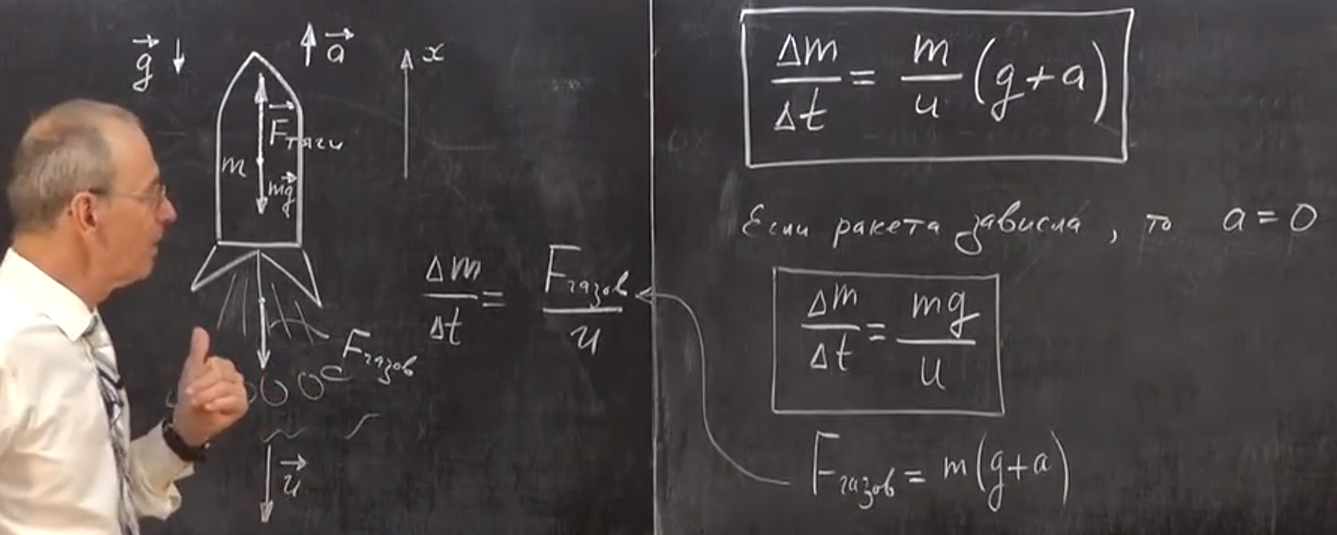 g↓
↑a
x
Fтяги
m
mg
Fгазов
u
Δm/Δt = Fгазов/u
Δm/Δt = m/u (g+a)
Если ракета зависла, то a = 0
Δm/Δt = mg/u
Fгазов = m(g+a)